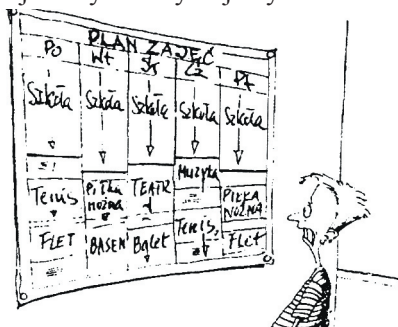 PLAN ZAJĘĆ
Po Wt Śr Cz Pt
Szkoła Szkoła Szkoła Szkoła Szkoła
Muzyka
Tenis Piłka nożna TEATR PIŁKA NOŻNA
FLET BASEN Balet Tenis Flet